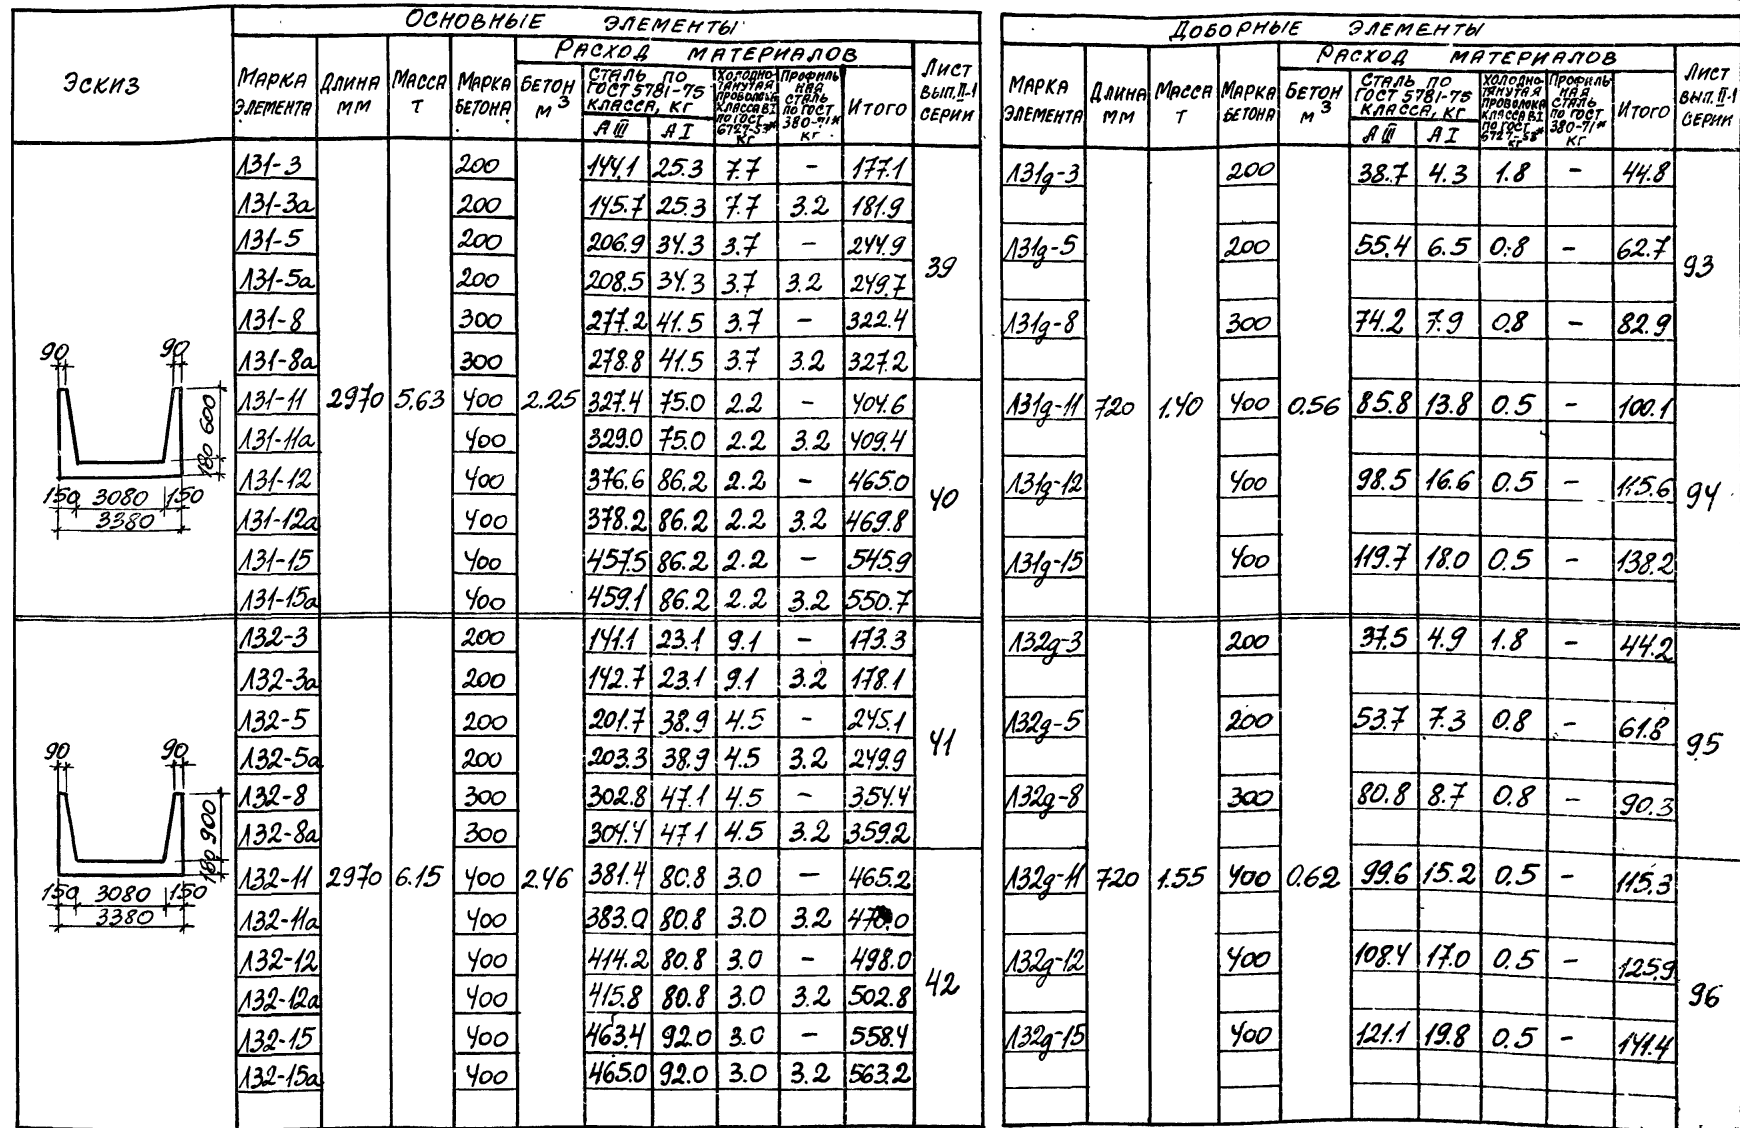 ЭСКИЗ
ОСНОВНЫЕ ЭЛЕМЕНТЫ
МАРКА ЭЛЕМЕНТА ДЛИНА ММ МАССА Т МАРКА БЕТОНА РАСХОД МАТЕРИАЛОВ ЛИСТ ВЫП. II-1 СЕРИИ
БЕТОН М³ СТАЛЬ ПО ГОСТ 5781-75 КЛАССА, КГ ХОЛОДНОТЯНУТАЯ ПРОВОЛОКА КЛАССА ВI ПО ГОСТ 6727-53* КГ ПРОФИЛЬНАЯ СТАЛЬ ПО ГОСТ 380-71* КГ ИТОГО
А III А I
Л31-3 200 144.1 25.3 7.7 - 177.1
Л31-3а 200 145.7 25.3 7.7 3.2 181.9
Л31-5 200 206.9 34.3 3.7 - 244.9
39
Л31-5а 200 208.5 34.3 3.7 3.2 249.7
Л31-8 300 277.2 41.5 3.7 - 322.4
Л31-8а 300 278.8 41.5 3.7 3.2 327.2
Л31-11 2970 5.63 400 2.25 327.4 75.0 2.2 - 404.6
Л31-11а 400 329.0 75.0 2.2 3.2 409.4
Л31-12 400 376.6 86.2 2.2 - 465.0
40
Л31-12а 400 378.2 86.2 2.2 3.2 469.8
Л31-15 400 457.5 86.2 2.2 - 545.9
Л31-15а 400 459.1 86.2 2.2 3.2 550.7
90 90
180 600
150 3080 150
3380
Л32-3 200 141.1 23.1 9.1 - 173.3
Л32-3а 200 142.7 23.1 9.1 3.2 178.1
Л32-5 200 201.7 38.9 4.5 - 245.1
41
Л32-5а 200 203.3 38.9 4.5 3.2 249.9
Л32-8 300 302.8 47.1 4.5 - 354.4
Л32-8а 300 304.4 47.1 4.5 3.2 359.2
Л32-11 2970 6.15 400 2.46 381.4 80.8 3.0 - 465.2
Л32-11а 400 383.0 80.8 3.0 3.2
Л32-12 400 414.2 80.8 3.0 - 498.0
42
Л32-12а 400 415.8 80.8 3.0 3.2 502.8
Л32-15 400 463.4 92.0 3.0 - 558.4
Л32-15а 400 465.0 92.0 3.0 3.2 563.2
90 90
900
150 3080 150
3380
ДОБОРНЫЕ ЭЛЕМЕНТЫ
МАРКА ЭЛЕМЕНТА ДЛИНА ММ МАССА Т МАРКА БЕТОНА РАСХОД МАТЕРИАЛОВ ЛИСТ ВЫП. II-1 СЕРИИ
БЕТОН М³ СТАЛЬ ПО ГОСТ 5781-75 КЛАССА, КГ ХОЛОДНОТЯНУТАЯ ПРОВОЛОКА КЛАССА ВI ПО ГОСТ 6727-53* КГ ПРОФИЛЬНАЯ СТАЛЬ ПО ГОСТ 380-71* КГ ИТОГО
А III А I
Л31д-3 200 38.7 4.3 1.8 - 44.8
Л31д-5 200 55.4 6.5 0.8 - 62.7
93
Л31д-8 300 74.2 7.9 0.8 - 82.9
Л31д-11 720 1.40 400 0.56 85.8 13.8 0.5 - 100.1
Л31д-12 400 98.5 16.6 0.5 - 115.6
94
Л31д-15 400 119.7 18.0 0.5 - 138.2
Л32д-3 200 37.5 4.9 1.8 - 44.2
Л32д-5 200 53.7 7.3 0.8 - 61.8
95
Л32д-8 300 80.8 8.7 0.8 - 90.3
Л32д-11 720 1.55 400 0.62 99.6 15.2 0.5 - 115.3
Л32д-12 400 108.4 17.0 0.5 - 125.9
96
Л32д-15 400 121.1 19.8 0.5 - 141.4